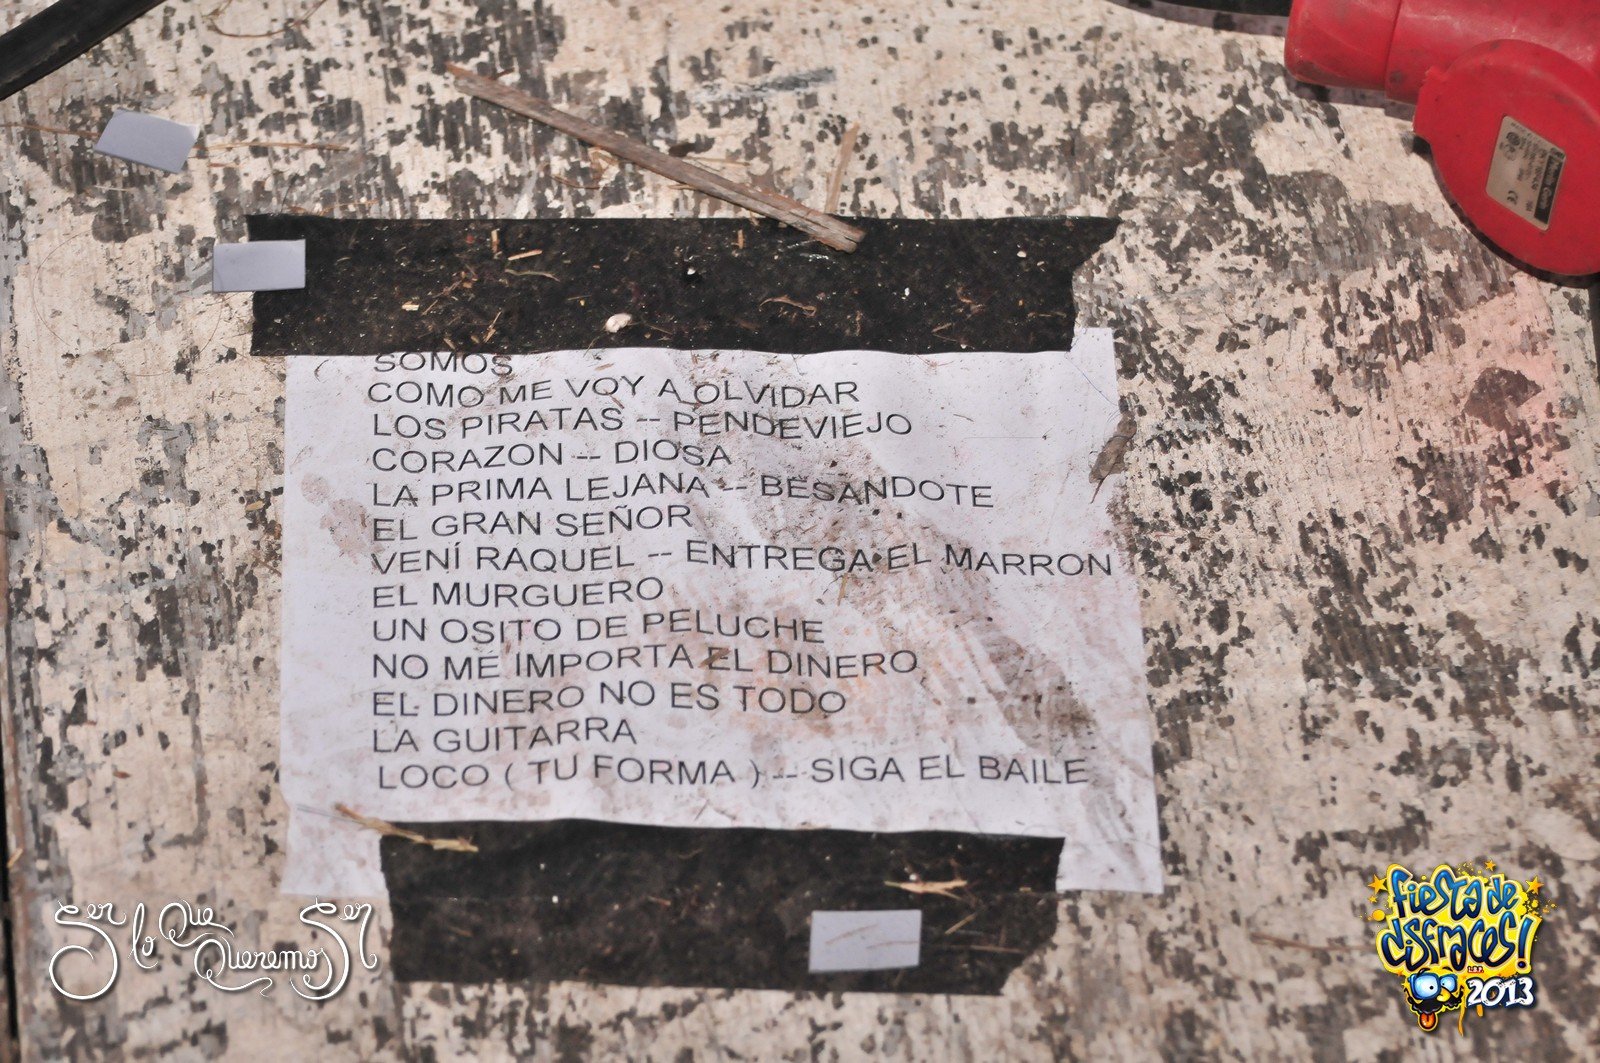 SOMOS
COMO ME VOY A OLVIDAR
LOS PIRATAS -- PENDEVIEJO
CORAZON -- DIOSA
LA PRIMA LEJANA -- BESANDOTE
EL GRAN SEÑOR
VENÍ RAQUEL -- ENTREGA EL MARRON
EL MURGUERO
UN OSITO DE PELUCHE
NO ME IMPORTA EL DINERO
EL DINERO NO ES TODO
LA GUITARRA
LOCO ( TU FORMA ) -- SIGA EL BAILE
Ser lo Que Queremos Ser
Fiesta de
disfraces!
L.B.P.
2013